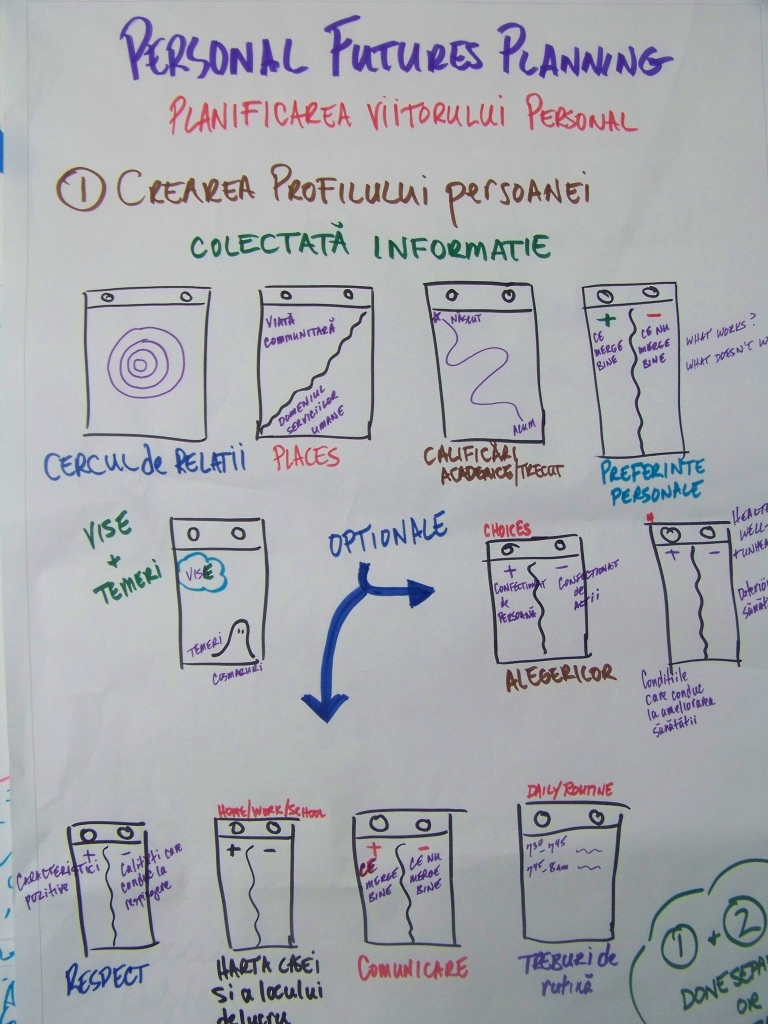 PERSONAL FUTURES PLANNING
PLANIFICAREA VIITORULUI PERSONAL
1 CREAREA PROFILULUI persoanei
COLECTATĂ INFORMATIE
VIATĂ
COMMUNITARĂ
DOMENIUL
SERVICIILOR
UMANE
NĂSCUT
ACUM
+ -
CE
MERGE
BINE
CE NU
MERGE
BINE
WHAT WORKS?
WHAT DOESN'T W
CERCUL de RELATII
PLACES
CALIFICĂRI
ACADEMICE/TRECUT
PREFERINTE
PERSONALE
VISE
+
TEMERI
VISE
TEMERI
COSMARURI
OPTIONALE
CHOICES
+ -
CONFECTIONAT
de
PERSOANĂ
CONFECTIONAT
de
ALEGERICOR
*
HEALT
WELL-
+UNHEA
+ -
sănăt
Conditiile
care conduc
la ameliorarea
sănătătii
CARACTERISTICI
pozitive
+ -
Calităti care
conduc la
respingere
RESPECT
HOME/WORK/SCHOOL
+ -
HARTA CASEI
si a locului
de lucru
+ -
CE
MERGE
BINE
CE NU
MERGE
BINE
COMUNICARE
DAILY/ROUTINE
7:30-7:45
7:45-8am
TREBURI de
rutină
1 + 2
DONE SEPA
OR